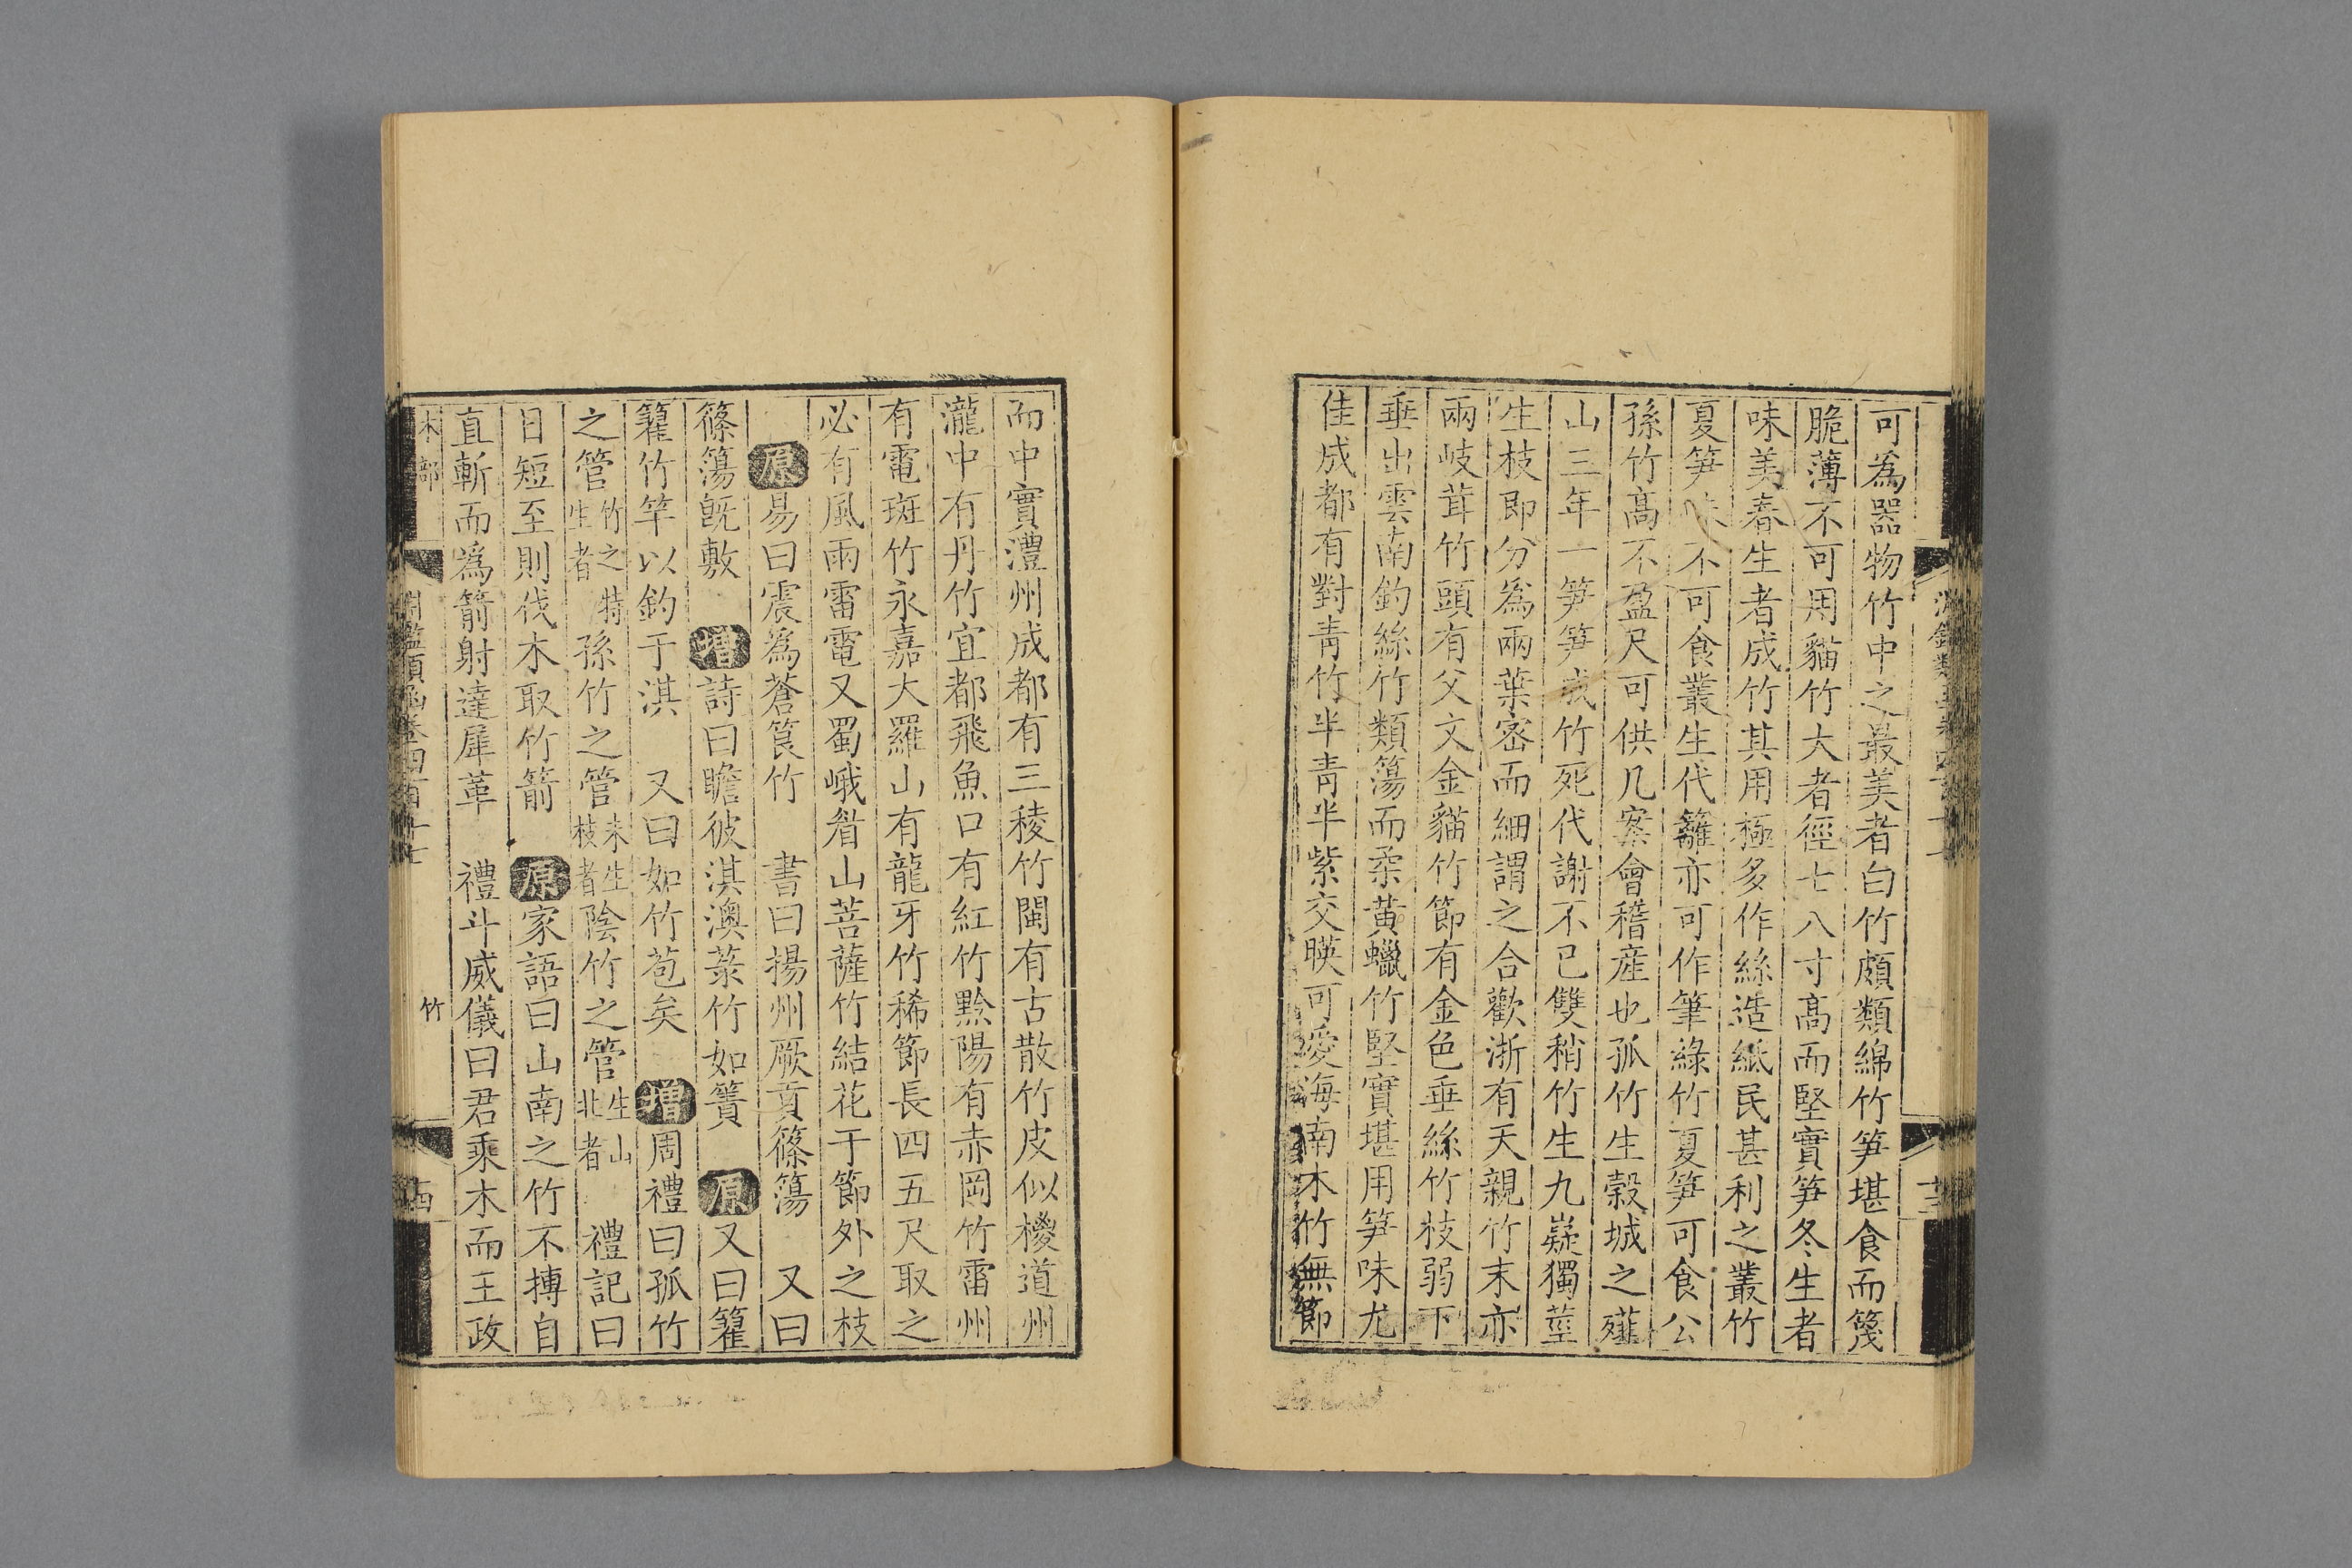 可為器物竹中之最美者白竹頗類綿竹笋堪食而篾
脆薄不可用貓竹大者徑七八寸髙而堅實笋冬生者
味美春生者成竹其用極多作絲造紙民甚利之叢竹
夏笋味不可食叢生代籬亦可作筆綠竹夏笋可食公
孫竹髙不盈尺可供几案會稽産也孤竹生榖城之薤
山三年一笋笋成竹死代謝不已雙稍竹生九嶷獨莖
生枝即分為兩葉宻而細謂之合歡浙有天親竹末亦
兩岐茸竹頭有父文金貓竹節有金色垂絲竹枝弱下
垂出雲南釣絲竹類簜而柔黃蠟竹堅實堪用笋味尤
佳成都有對青竹半青半紫交暎可愛海南木竹無節
而中實澧州成都有三稜竹閩有古散竹皮似椶道州
瀧中有丹竹宜都飛魚口有紅竹黔陽有赤岡竹雷州
有電斑竹永嘉大羅山有龍牙竹稀節長四五尺取之
必有風雨雷電又蜀峨眉山菩薩竹結花于節外之枝
原易曰震為蒼筤竹 書曰揚州厥貢篠簜 又曰
篠簜既敷 增詩曰瞻彼淇澳菉竹如簀 原又曰籊
籊竹竿以釣于淇 又曰如竹苞矣 增周禮曰孤竹
之管竹之特生者孫竹之管枝未生者陰竹之管生山北者 禮記曰
日短至則伐木取竹箭 原家語曰山南之竹不搏自
直斬而為箭射達犀革 禮斗威儀曰君乘木而王政
木部
淵鑑類函卷四百十七
竹